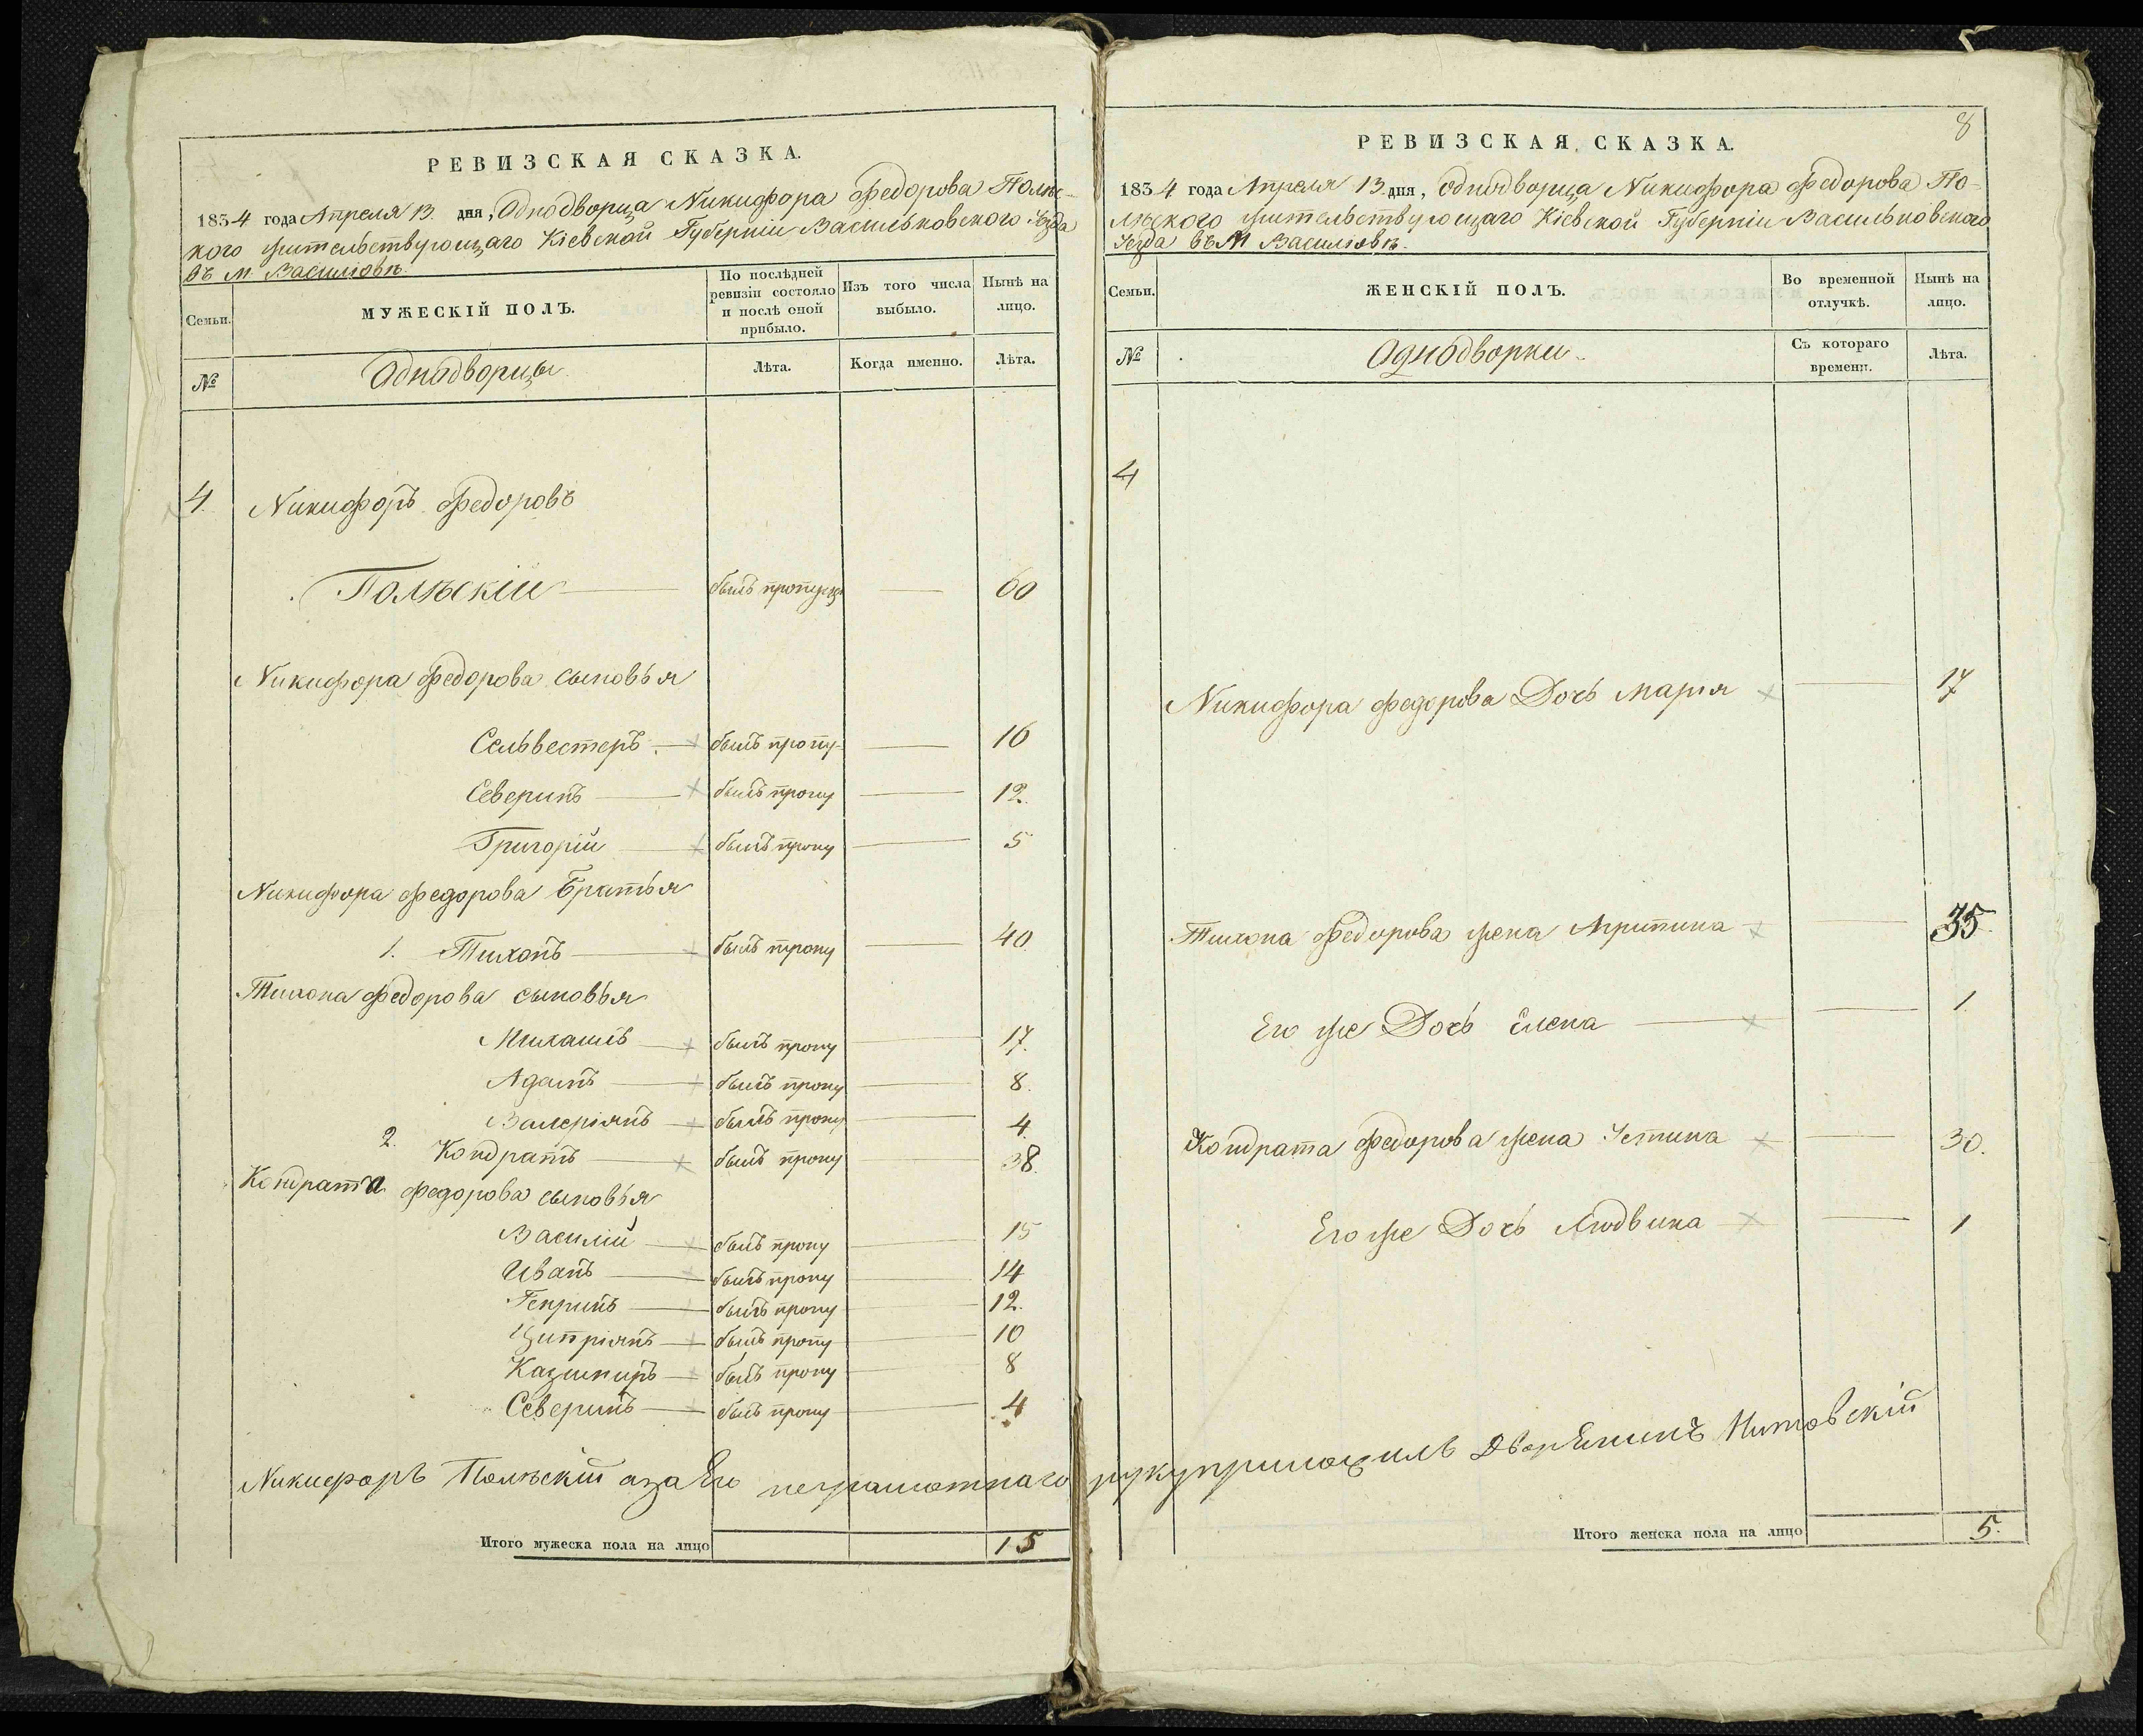 РЕВИЗСКАЯ СКАЗКА.
1834 года Апреля 13. дня, Однодворца Никифора Федорова Полѣс-
кого жительствующаго Кіевской Губерніи Васильковского Уезда
въ М. Василіовѣ.
Семьи. МУЖЕСКІЙ ПОЛЪ. По послѣдней ревизіи состояло и послѣ оной прибыло. Изъ того числа выбыло. Нынѣ на лицо.
№ Однодворцы Лѣта. Когда именно. Лѣта.
4. Никифоръ Федоровъ
Полѣскій былъ пропущ 60
Никифора Федорова сыновья
Сельвестеръ былъ пропу 16
Северинъ былъ пропу 12.
Григорій былъ пропу 5
Никифора Федорова Братья
1. Тихонъ былъ пропу 40.
Тихона Федорова сыновья
Михаилъ былъ пропу 17.
Адамъ былъ пропу 8.
Валеріянъ былъ пропу 4.
2. Кондратъ былъ пропу 38.
Кондрата Федорова сыновья
Василій былъ пропу 15
Иванъ былъ пропу 14
Генрикъ былъ пропу 12.
Ципріянъ былъ пропу 10
Казимиръ былъ пропу 8
Северинъ былъ пропу 4
Никифоръ Полѣскій а за Его неграмотнаго руку приложилъ Дворенинъ Витовскій
Итого мужеска пола на лицо 15
8
РЕВИЗСКАЯ СКАЗКА.
1834 года Апреля 13. дня, Однодворца Никифора Федорова По-
лѣского жительствующаго Кіевской Губерніи Васильковского
Уезда въ М Василіовѣ.
Семьи. ЖЕНСКІЙ ПОЛЪ. Во временной отлучкѣ. Нынѣ на лицо.
№ Однодворки Съ котораго времени. Лѣта.
4
Никифора Федорова Дочь Марія 17
Тихона Федорова жена Агрипина 35.
Его же Дочь Елена 1.
Кондрата Федорова жена Устина 30.
Его же Дочь Людвика 1
Итого женска пола на лицо 5.